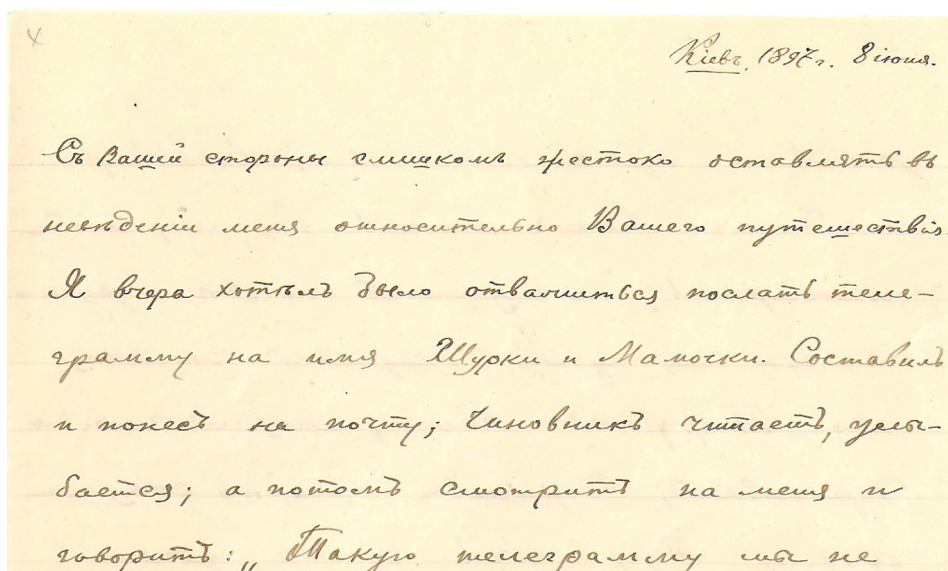 Кіевъ, 1897 г. 8 іюня.
Съ Вашей стороны слишкомъ жестоко оставлять въ
невѣденіи меня относительно Вашего путешествія.
Я вчера хотѣлъ было отважиться послать теле-
грамму на имя Шурки и Мамочки. Составилъ
и понесъ на почту; чиновникъ читаетъ, улы-
бается; а потомъ смотритъ на меня и
говоритъ: „Такую телеграмму мы не